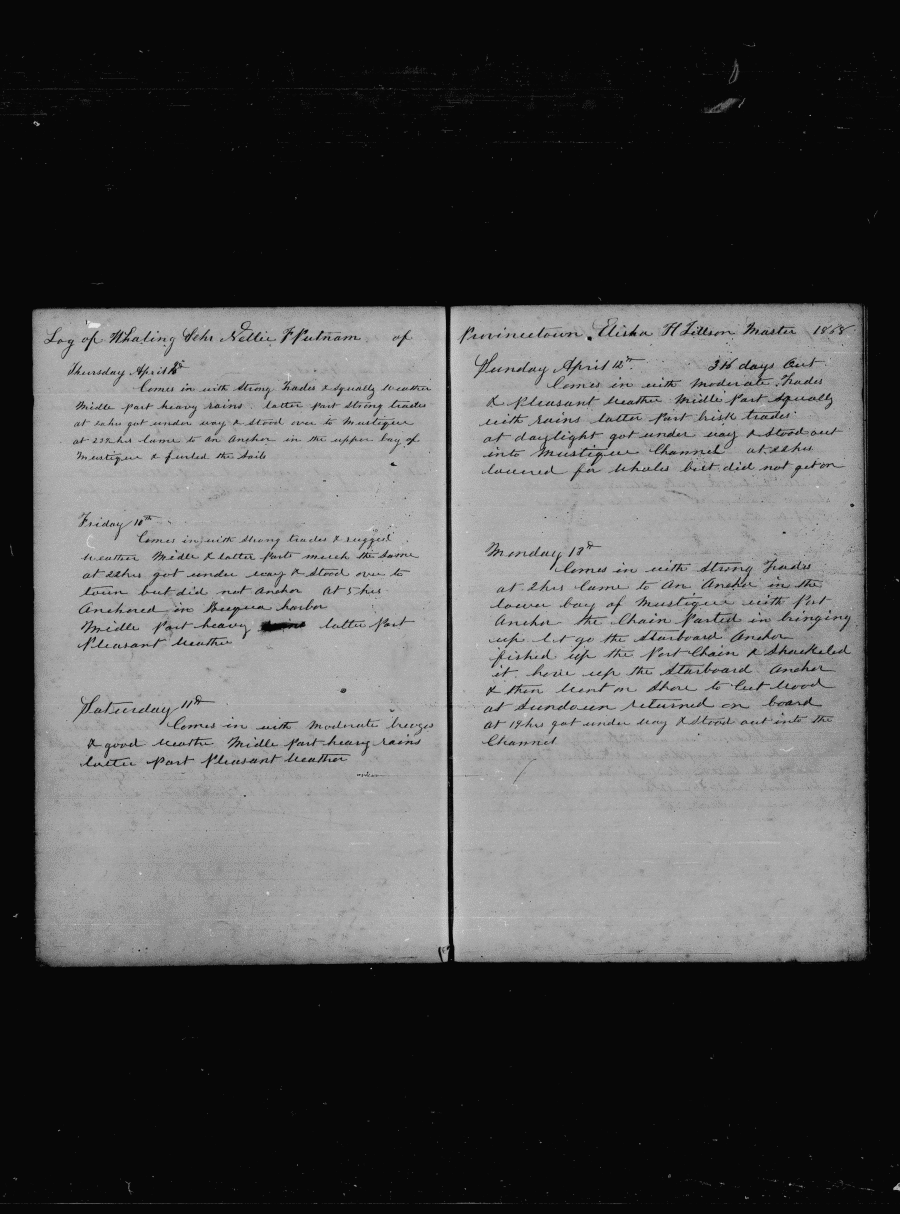 Log of Whaling Schr Nellie F Putnam of
Thursday April
Comes in with Strong Trades & Squally Weather
Midle Part heavy rains. latter Part Strong trades
at hrs got under way & Stood over to Mustique
at 22 hrs Came to an Anchor in the upper bay of
Mustique & furled the Sails
Friday 10th
Comes in with Strong trades & rugged
Weather Midle & latter Parts much the Same
at 22 hrs got under way & Stood over to
town but did not Anchor At 5 hrs
Anchored in Bequia harbor
Midle Part heavy latter Part
Pleasant Weather
Saturday 11th
Comes in with Moderate breezes
& good Weathe Midle Part heavy rains
latter Part Pleasant Weather
Provincetown. Elisha H Tillson Master 1868
Sunday April 12th. days Out
Comes in with Moderate Trades
& Pleasant Weather Midle Part Squally
with rains latter Part brisk trades
at daylight got under way & Stood out
into Mustique Channel at 22 hrs
lowered for Whales but did not get on
Monday 13th
Comes in with Strong Trades
at 2 hrs Came to An Anchor in the
lower bay of Mustique with Port
Anchor the Chain Parted in bringing
up let go the Starboard Anchor
fished up the Port Chain & Shackeled
it. hove up the Starboard Anchor
& then Went on Shore to Cut Wood
at Sundown returned on board
At 19 hrs got under way & Stood out into the
Channel